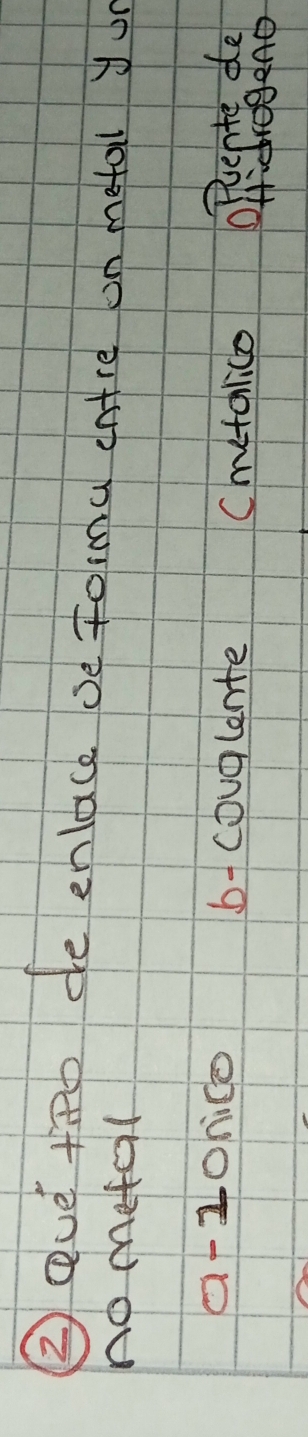 2 Qué tipo de enlace se forma entre un metal y un
no metal
a- Ionico b- covalente c metalico D Puente de
Hidrogeno